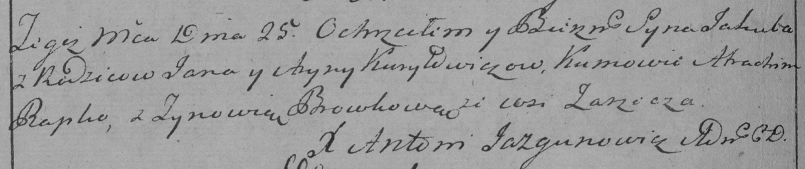 Tegoż Mca Dnia 25. Ochrzciłem y Bierzm Syna Jakuba
z Rodzicow Jana y Aryny Kuryłowiczow, Kumowie Atrachim
Rapko, z Zynowią Browkową ze wsi Zarzecza.
X Antoni Jazgunowicz